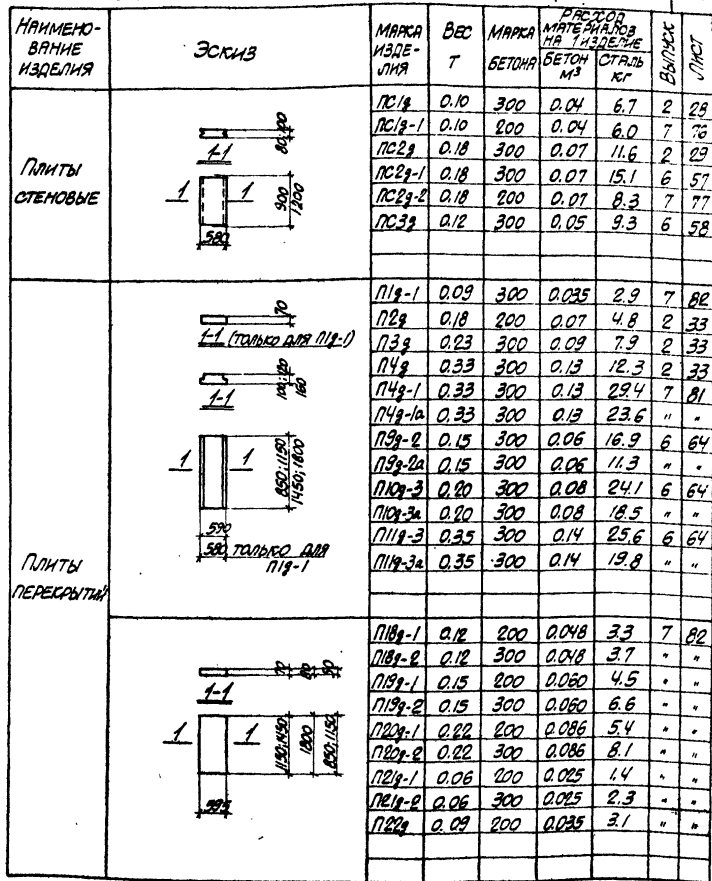 НАИМЕНО-ВАНИЕ ИЗДЕЛИЯ | ЭСКИЗ | МАРКА ИЗДЕ-ЛИЯ | ВЕС Т | МАРКА БЕТОНА | РАСХОД МАТЕРИАЛОВ НА 1 ИЗДЕЛИЕ БЕТОН М³ | СТАЛЬ КГ | ВЫПУСК | ЛИСТ
ПЛИТЫ СТЕНОВЫЕ
1-1
1 1
900
1200
580
ПС1д 0.10 300 0.04 6.7 2 28
ПС1д-1 0.10 200 0.04 6.0 7 76
ПС2д 0.18 300 0.07 11.6 2 29
ПС2д-1 0.18 300 0.07 15.1 6 57
ПС2д-2 0.18 200 0.07 8.3 7 77
ПС3д 0.12 300 0.05 9.3 6 58
ПЛИТЫ ПЕРЕКРЫТИЙ
70
1-1 (ТОЛЬКО ДЛЯ П1д-1)
100;120
160
1-1
1 1
850;1150
1450;1800
590
580 ТОЛЬКО ДЛЯ
П1д-1
П1д-1 0.09 300 0.035 2.9 7 82
П2д 0.18 200 0.07 4.8 2 33
П3д 0.23 300 0.09 7.9 2 33
П4д 0.33 300 0.13 12.3 2 33
П4д-1 0.33 300 0.13 29.4 7 81
П4д-1а 0.33 300 0.13 23.6 " "
П9д-2 0.15 300 0.06 16.9 6 64
П9д-2а 0.15 300 0.06 11.3 " "
П10д-3 0.20 300 0.08 24.1 6 64
П10д-3а 0.20 300 0.08 18.5 " "
П11д-3 0.35 300 0.14 25.6 6 64
П11д-3а 0.35 300 0.14 19.8 " "
70 80 50
1-1
1 1
1150;1450
1800
850;1150
595
П18д-1 0.12 200 0.048 3.3 7 82
П18д-2 0.12 300 0.048 3.7 " "
П19д-1 0.15 200 0.060 4.5 " "
П19д-2 0.15 300 0.060 6.6 " "
П20д-1 0.22 200 0.086 5.4 " "
П20д-2 0.22 300 0.086 8.1 " "
П21д-1 0.06 200 0.025 1.4 " "
П21д-2 0.06 300 0.025 2.3 " "
П22д 0.09 200 0.035 3.1 " "